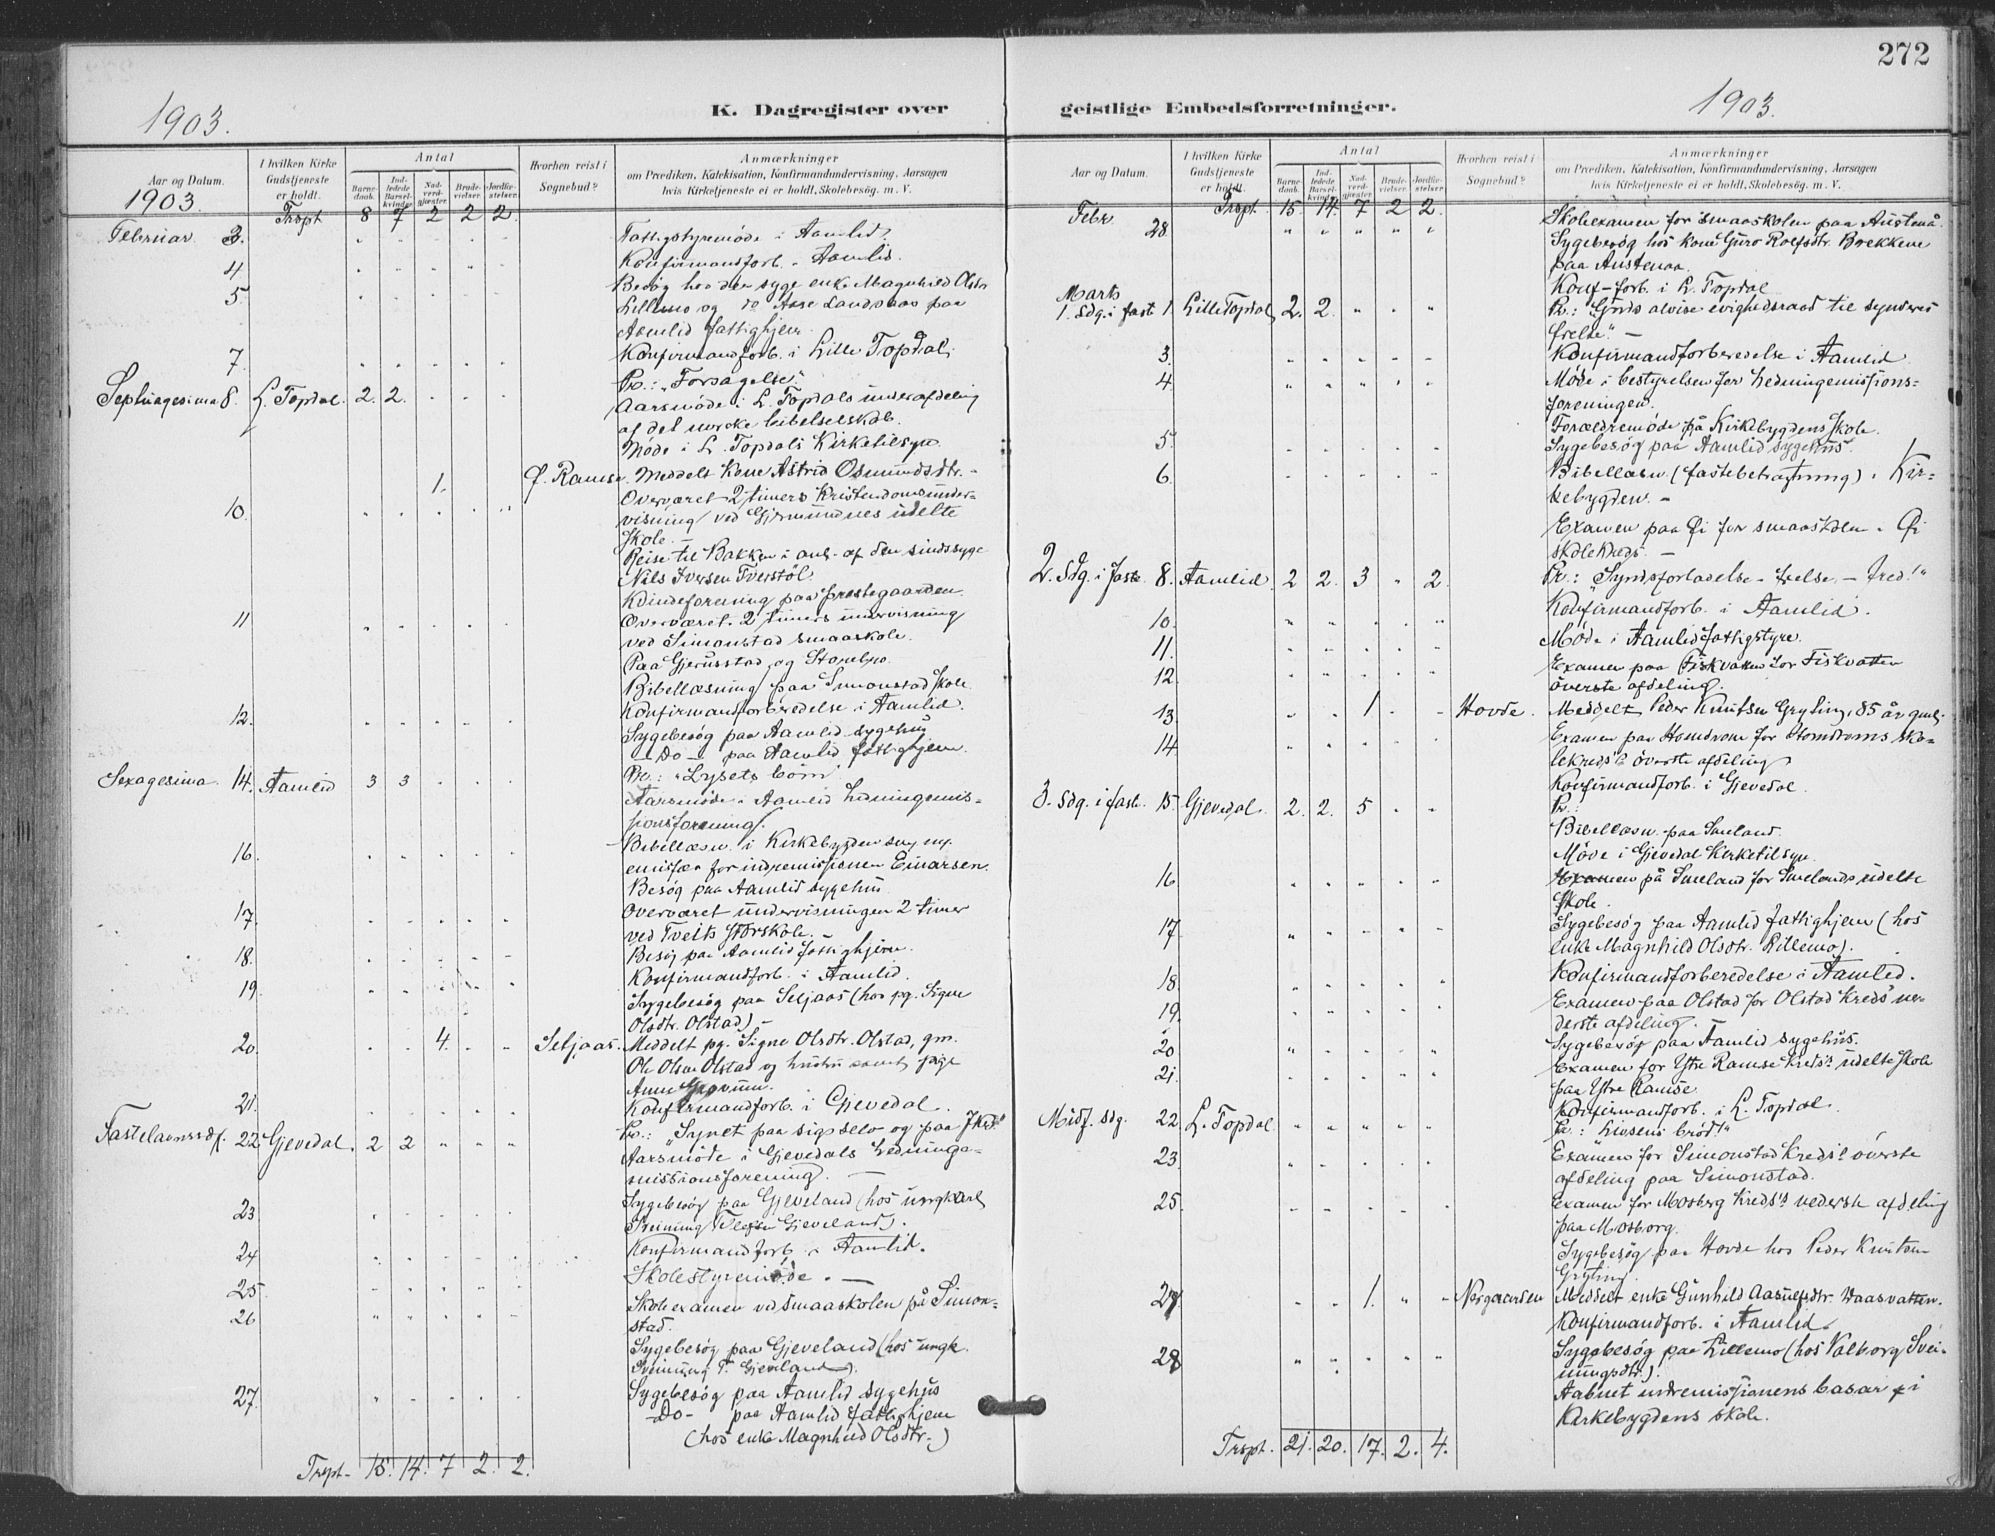 272
1903.
K. Dagregister over
Aar og Datum.
I hvilken Kirke Gudstjeneste er holdt.
Antal
Barnedaab.
Indledede Barselkvinder.
Nadverdgjæster.
Brudevielser.
Jordfæstelser.
Hvorhen reist i Sognebud?
Anmærkninger
om Prædiken, Katekisation, Konfirmandundervisning, Aarsagen
hvis Kirketjeneste ei er holdt, Skolebesøg. m. V.
1903. Trspt 8 7 2 2 2.
Februar 3. Fattigstyremöde i Aamlid.
4 Konfirmandforb. i Aamlid.
5 Besög hos den syge enke Magnhild Olsdr
Lillemo og do Aase Landsaas paa
Aamlid fattighjem.
7. Konfirmandforb. i Lille Topdal.
Septuagesima 8. L. Topdal. 2. 2. Pr.: „Forsagelse."
Aarsmöde i L. Topdals underafdeling
af det norske bibelselskab.
Möde i L. Topdals Kirketilsyn.
1. Ø. Ramse. Meddelt Kone Astrid Osmundsdtr.
10. Overværet 2 timers Kristendomsunder-
visning ved Gjermundnes udelte
Skole. —
Reise til Bakken i anl. af den sindssyge
Nils Iversen Tverstöl
Kvindeforening paa prestegaarden.
11 Overværet 2 timers undervisning
ved Simonstad smaaskole.
Paa Gjerusstad og
Bibellæsning paa Simonstad Skole
12. Konfirmandforberedelse i Aamlid.
Sygebesög paa Aamlid sygehus
— Do — paa Aamlid fattighjem.
Sexagesima 14. Aamlid 3 3 Pr.: „Lysets börn"
Aarsmöde i Aamlid hedningemis-
sionsforening.
16. Bibellæsn. i Kirkebygden
emisfær for indremissionen Einarsen.
Besög paa Aamlid sygehus
17. Overværet undervisningen 2 timer
ved Tveits storskole. —
18. Besög paa Aamlid fattighjem.
Konfirmandforb. i Aamlid.
19 Sygebesög paa Seljaas (hos pg. Signe
Olsdtr. Olstad) —
20. 4. Seljaas. Meddelt pg. Signe Olsdtr. Olstad, gm.
Ole Olsen Olstad og hustru samt pige
Anne
21. Konfirmandforb. i Gjevedal.
Fastelavnssdg. 22. Gjevedal. 2 2 Pr.: „Synet paa sig selv og paa
Aarsmöde i Gjevedals hedninge-
missionsforening. —
23 Sygebesög paa Gjeveland (hos ungkarl
Sveinung Gjeveland).
24 Konfirmandforb. i Aamlid.
25 Skolestyremöde. —
26 Skoleexamen ved smaaskolen på Simon-
stad.
Sygebesög paa Gjeveland (hos ungk.
Sveinung T. Gjeveland).
27. Sygebesög paa Aamlid sygehus
— Do — paa Aamlid fattighjem
(hos enke Magnhild Olsdtr.)
Trspt. 15. 14. 7 2. 2.
geistlige Embedsforretninger.
1903.
Aar og Datum.
I hvilken Kirke Gudstjeneste er holdt.
Antal
Barnedaab.
Indledede Barselkvinder.
Nadverdgjæster.
Brudevielser.
Jordfæstelser.
Hvorhen reist i Sognebud?
Anmærkninger
om Prædiken, Katekisation, Konfirmandundervisning, Aarsagen
hvis Kirketjeneste ei er holdt, Skolebesøg. m. V.
Trspt. 15 14. 7 2 2.
Febr. 28 Skoleexamen for smaaskolen paa Austenå.
Sygebesög hos kone Guro Rolfsdtr. Brekkene
paa Austenaa.
Konf-forb. i L. Topdal
Marts
1. Sdg. i fast. 1. Lille Topdal. 2. 2. Pr.: „Guds alvise evighedsraad til synderes
frelse". —
3. Konfirmandforberedelse i Aamlid
4. Möde i bestyrelsen for hedningemissions-
foreningen.
Forældremöde på Kirkebygdens Skole.
5. Sygebesög paa Aamlid sygehus.
6. Bibellæsn (fastebetragtning) i Kir-
kebygden. —
Examen paa Öi for smaaskolen i Öi
skolekreds. —
2. Sdg. i faste 8. Aamlid 2 2. 3 2. Pr.: „Syndsforladelse - frelse, - fred!"
10. Konfirmandforb. i Aamlid.
11. Möde i Aamlid fattigstyre.
12. Examen paa Fiskvatten for Fiskvatten
överste afdeling.
13. 1. Hovde. Meddelt Peder Knutsen Gryting, 85 år gml.
14. Examen paa Homdrom for Homdroms sko-
lekreds's överste afdeling
Konfirmandforb. i Gjevedal.
3. Sdg. i fast. 15. Gjevedal. 2. 2. 5 Pr.:
Bibellæsn. paa Smeland.
Möde i Gjevedal Kirketilsyn.
16 Examen på Smeland for Smelands udelte
Skole.
17. Sygebesög paa Aamlid fattighjem (hos
enke Magnhild Olsdtr. Lillemo).
18. Konfirmandforberedelse i Aamlid.
19. Examen paa Olstad for Olstad Kreds' ne-
derste afdeling.
20 Sygebesög paa Aamlid sygehus.
21. Examen for Ytre Ramse Kreds's udelte Skole
paa Ytre Ramse
Konfirmandforb. i L. Topdal.
Midf. Sdg. 22. L. Topdal Pr.: „Livsens bröd!"
23. Examen for Simonstad Kreds's överste
afdeling paa Simonstad.
25. Examen for Mosberg Kreds's nederste afdeling
paa Mosberg.
Sygebesög paa Hovde hos Peder Knutsen
Gryting.
27. 1. Nergaarden Meddelt enke Gunhild Aasulfsdtr. Vaasvatten.
Konfirmandforb. i Aamlid.
28 Sygebesög paa Lillemo (hos Valborg Svei-
nungsdtr.).
Aabnet indremissionens basar i
Kirkebygdens skole.
Trspt. 21. 20. 17. 2. 4.